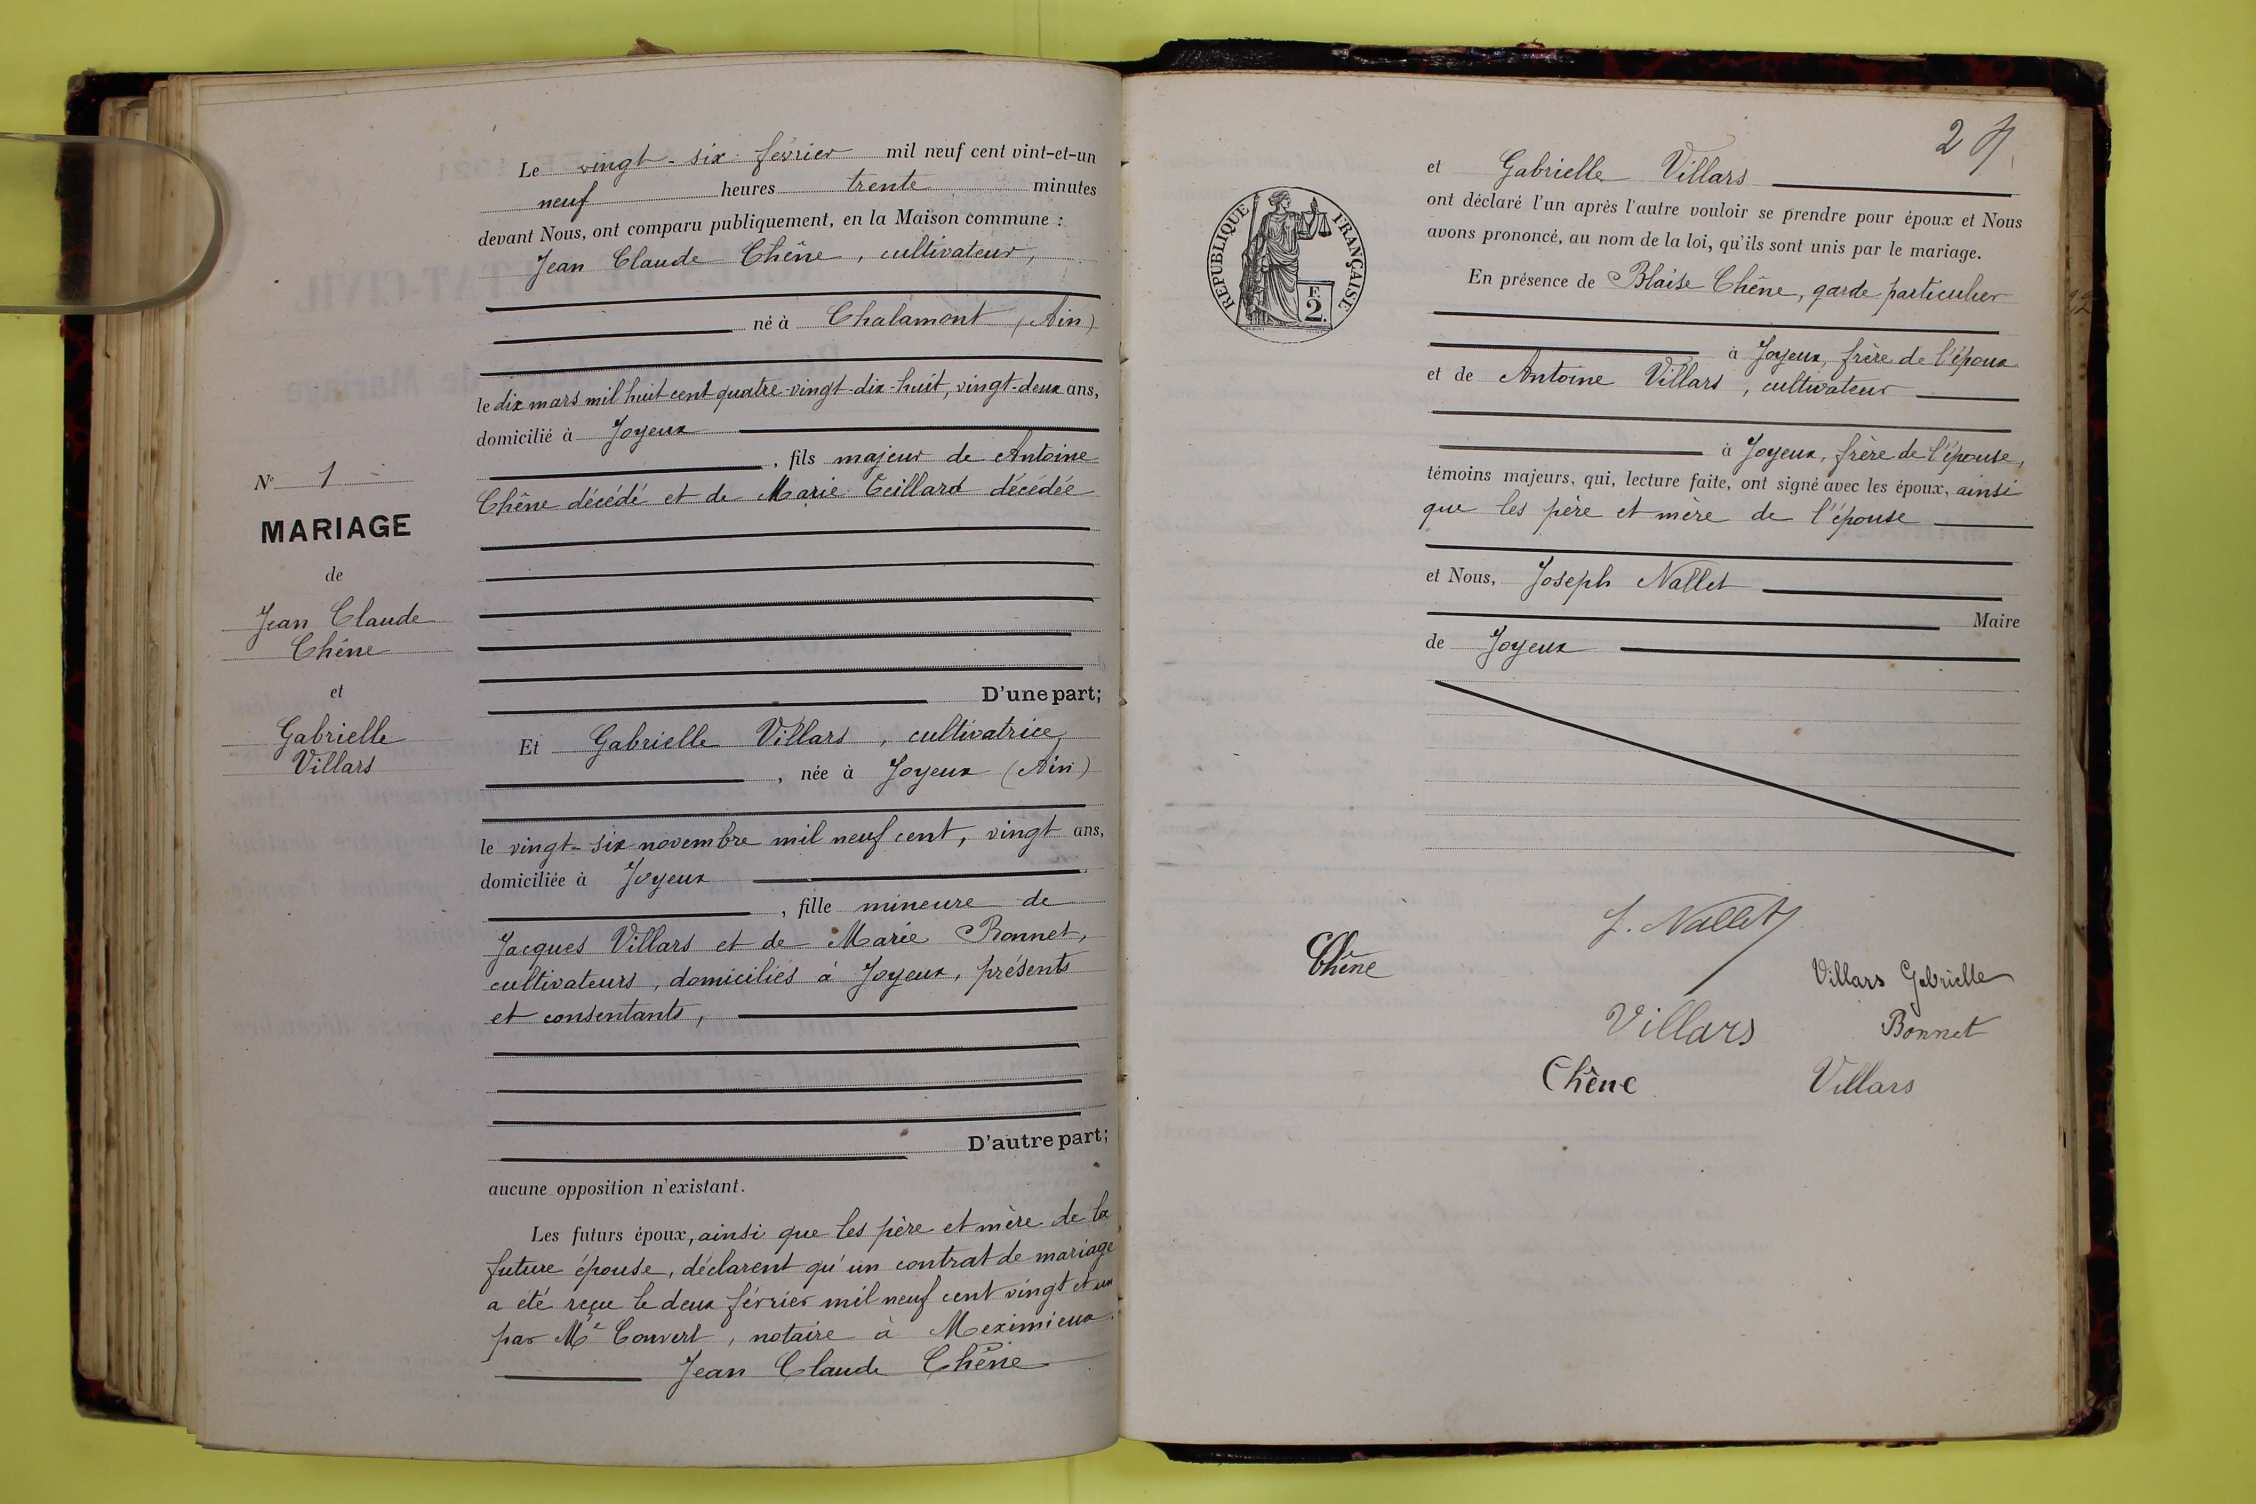 Le vingt-six février mil neuf cent vint-et-un
neuf heures trente minutes
devant Nous, ont comparu publiquement, en la Maison commune :
Jean Claude Chêne, cultivateur,
né à Chalamont (Ain)
le dix mars mil huit cent quatre-vingt-dix-huit, vingt-deux ans,
domicilié à Joyeux
, fils majeur de Antoine
Chêne décédé et de Marie Teillard décédée
D'une part;
Et Gabrielle Villars, cultivatrice,
, née à Joyeux (Ain)
le vingt-six novembre mil neuf cent, vingt ans,
domiciliée à Joyeux
, fille mineure de
Jacques Villars et de Marie Bonnet,
cultivateurs, domiciliés à Joyeux, présents
et consentants,
D'autre part;
aucune opposition n'existant.
Les futurs époux, ainsi que les père et mère de la
future épouse, déclarent qu'un contrat de mariage
a été reçu le deux février mil neuf cent vingt et un
par Me Convert, notaire à Meximieux.
Jean Claude Chêne
No 1
MARIAGE
de
Jean Claude
Chêne
et
Gabrielle
Villars
2
et Gabrielle Villars
ont déclaré l'un après l'autre vouloir se prendre pour époux et Nous
avons prononcé, au nom de la loi, qu'ils sont unis par le mariage.
En présence de Blaise Chêne, garde particulier
à Joyeux, frère de l'époux
et de Antoine Villars, cultivateur
à Joyeux, frère de l'épouse,
témoins majeurs, qui, lecture faite, ont signé avec les époux, ainsi
que les père et mère de l'épouse
et Nous, Joseph Nallet
Maire
de Joyeux
RÉPUBLIQUE FRANÇAISE
F.
2.
J. Nallet
Chêne
Villars Gabrielle
Villars
Bonnet
Chêne
Villars